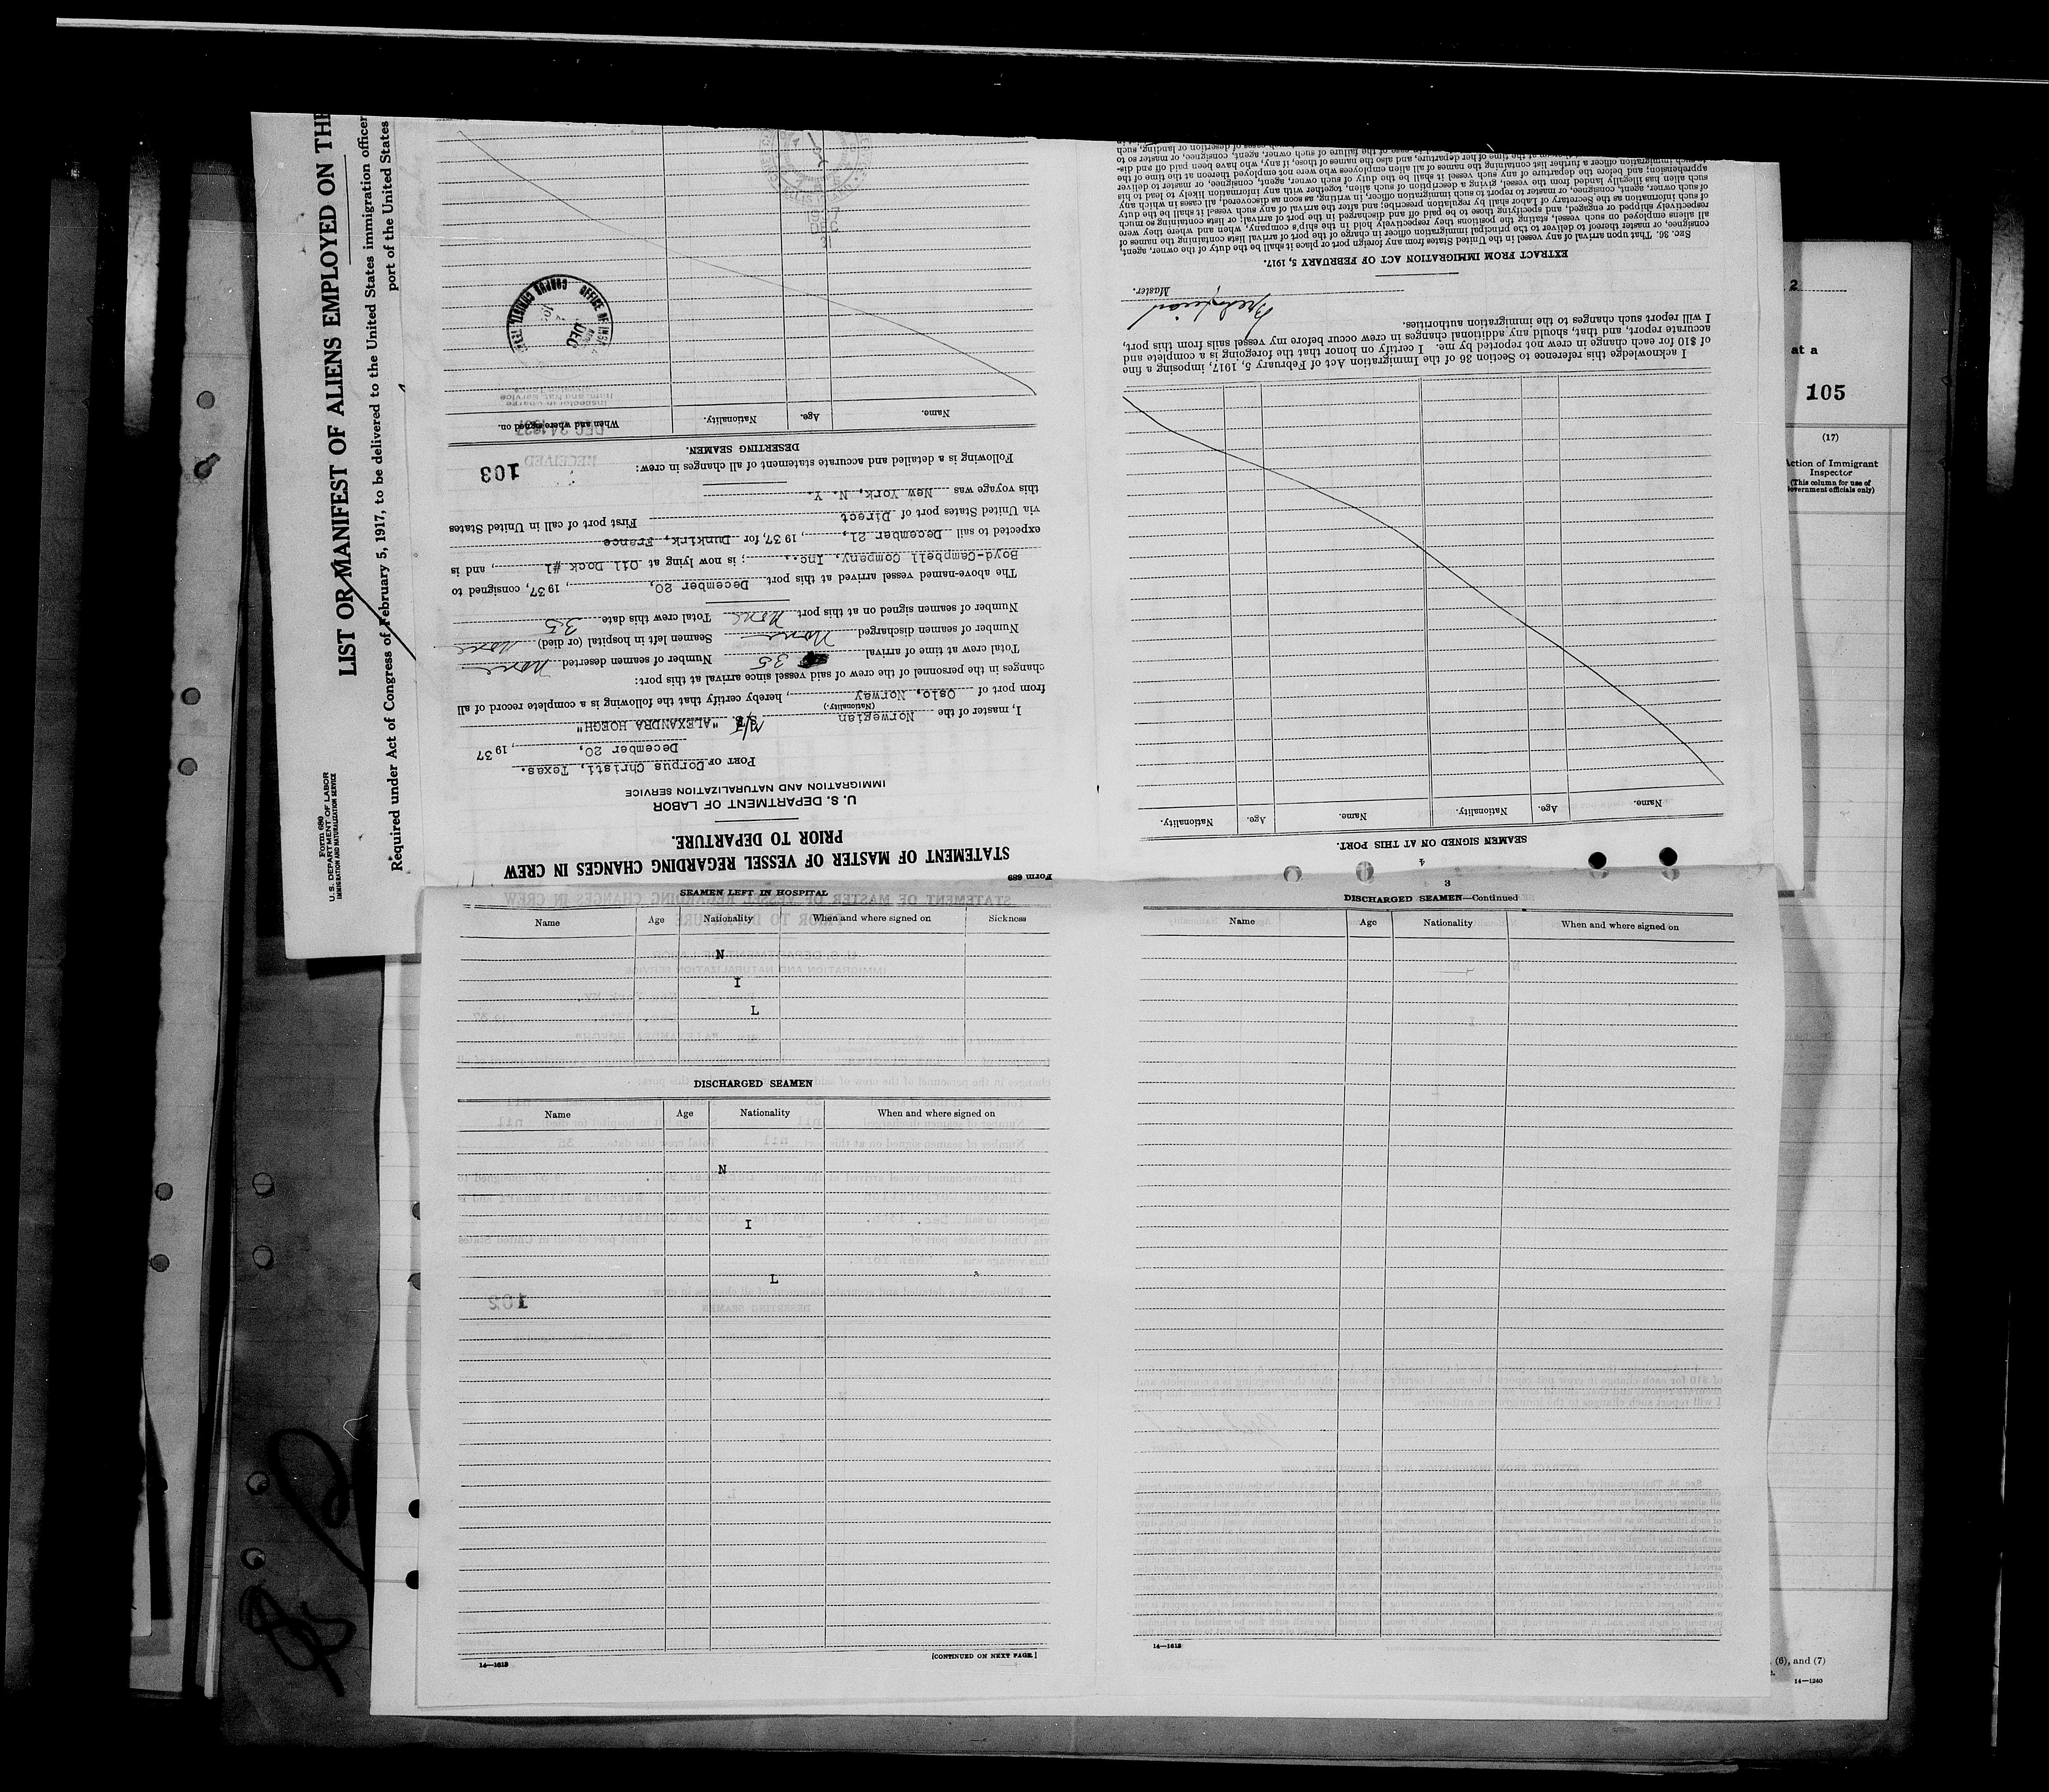 Form 680
U. S. DEPARTMENT OF LABOR
IMMIGRATION AND NATURALIZATION SERVICE
LIST OR MANIFEST OF ALIENS EMPLOYED ON THE
Required under Act of Congress of February 5, 1917, to be delivered to the United States immigration officer
port of the United States
Form 689
STATEMENT OF MASTER OF VESSEL REGARDING CHANGES IN CREW
PRIOR TO DEPARTURE.
U. S. DEPARTMENT OF LABOR
IMMIGRATION AND NATURALIZATION SERVICE
PORT OF Corpus Christi, Texas.
December 20, , 1937
I, master of the Norwegian M/T "ALEXANDRA HOEGH"
(Nationality.)
from port of Oslo, Norway , hereby certify that the following is a complete record of all
changes in the personnel of the crew of said vessel since arrival at this port:
Total crew at time of arrival 35 Number of seamen deserted None
Number of seamen discharged None Seamen left in hospital (or died) None
Number of seamen signed on at this port None Total crew this date 35
The above-named vessel arrived at this port December 20, , 1937, consigned to
Boyd-Campbell Company, Inc., ; is now lying at Oil Dock #1 , and is
expected to sail December 21, , 1937, for Dunkirk, France
via United States port of Direct First port of call in United States
this voyage was New York, N. Y.
Following is a detailed and accurate statement of all changes in crew:
103
RECEIVED
DESERTING SEAMEN.
Name. Age. Nationality. When and where signed on.
DEC 24 1937
Inspector in Charge
Imm. and Nat. Service
OFFICE OF
CORPUS CHRISTI, TEXAS
DEC
1937
DEC
31
4
SEAMEN SIGNED ON AT THIS PORT.
Name. Age. Nationality. Name. Age. Nationality.
I acknowledge this reference to Section 36 of the Immigration Act of February 5, 1917, imposing a fine
of $10 for each change in crew not reported by me. I certify on honor that the foregoing is a complete and
accurate report, and that, should any additional changes in crew occur before my vessel sails from this port,
I will report such changes to the immigration authorities.
Master.
EXTRACT FROM IMMIGRATION ACT OF FEBRUARY 5, 1917.
SEC. 36. That upon arrival of any vessel in the United States from any foreign port or place it shall be the duty of the owner, agent,
consignee, or master thereof to deliver to the principal immigration officer in charge of the port of arrival lists containing the names of
all aliens employed on such vessel, stating the positions they respectively hold in the ship's company, when and where they were
respectively shipped or engaged, and specifying those to be paid off and discharged in the port of arrival; or lists containing so much
of such information as the Secretary of Labor shall by regulation prescribe; and after the arrival of any such vessel it shall be the duty
of such owner, agent, consignee, or master to report to such immigration officer, in writing, as soon as discovered, all cases in which any
such alien has illegally landed from the vessel, giving a description of such alien, together with any information likely to lead to his
apprehension; and before the departure of any such vessel it shall be the duty of such owner, agent, consignee, or master to deliver
to such immigration officer a further list containing the names of all alien employees who were not employed thereon at the time of the
arrival
SEAMEN LEFT IN HOSPITAL
Name Age Nationality When and where signed on Sickness
N
I
L
DISCHARGED SEAMEN
Name Age Nationality When and where signed on
N
I
L
102
14—1613
[CONTINUED ON NEXT PAGE.]
3
DISCHARGED SEAMEN—Continued
Name Age Nationality When and where signed on
14—1613
2
at a
105
(17)
Action of Immigrant
Inspector
(This column for use of
Government officials only)
(6), and (7)
14—1240